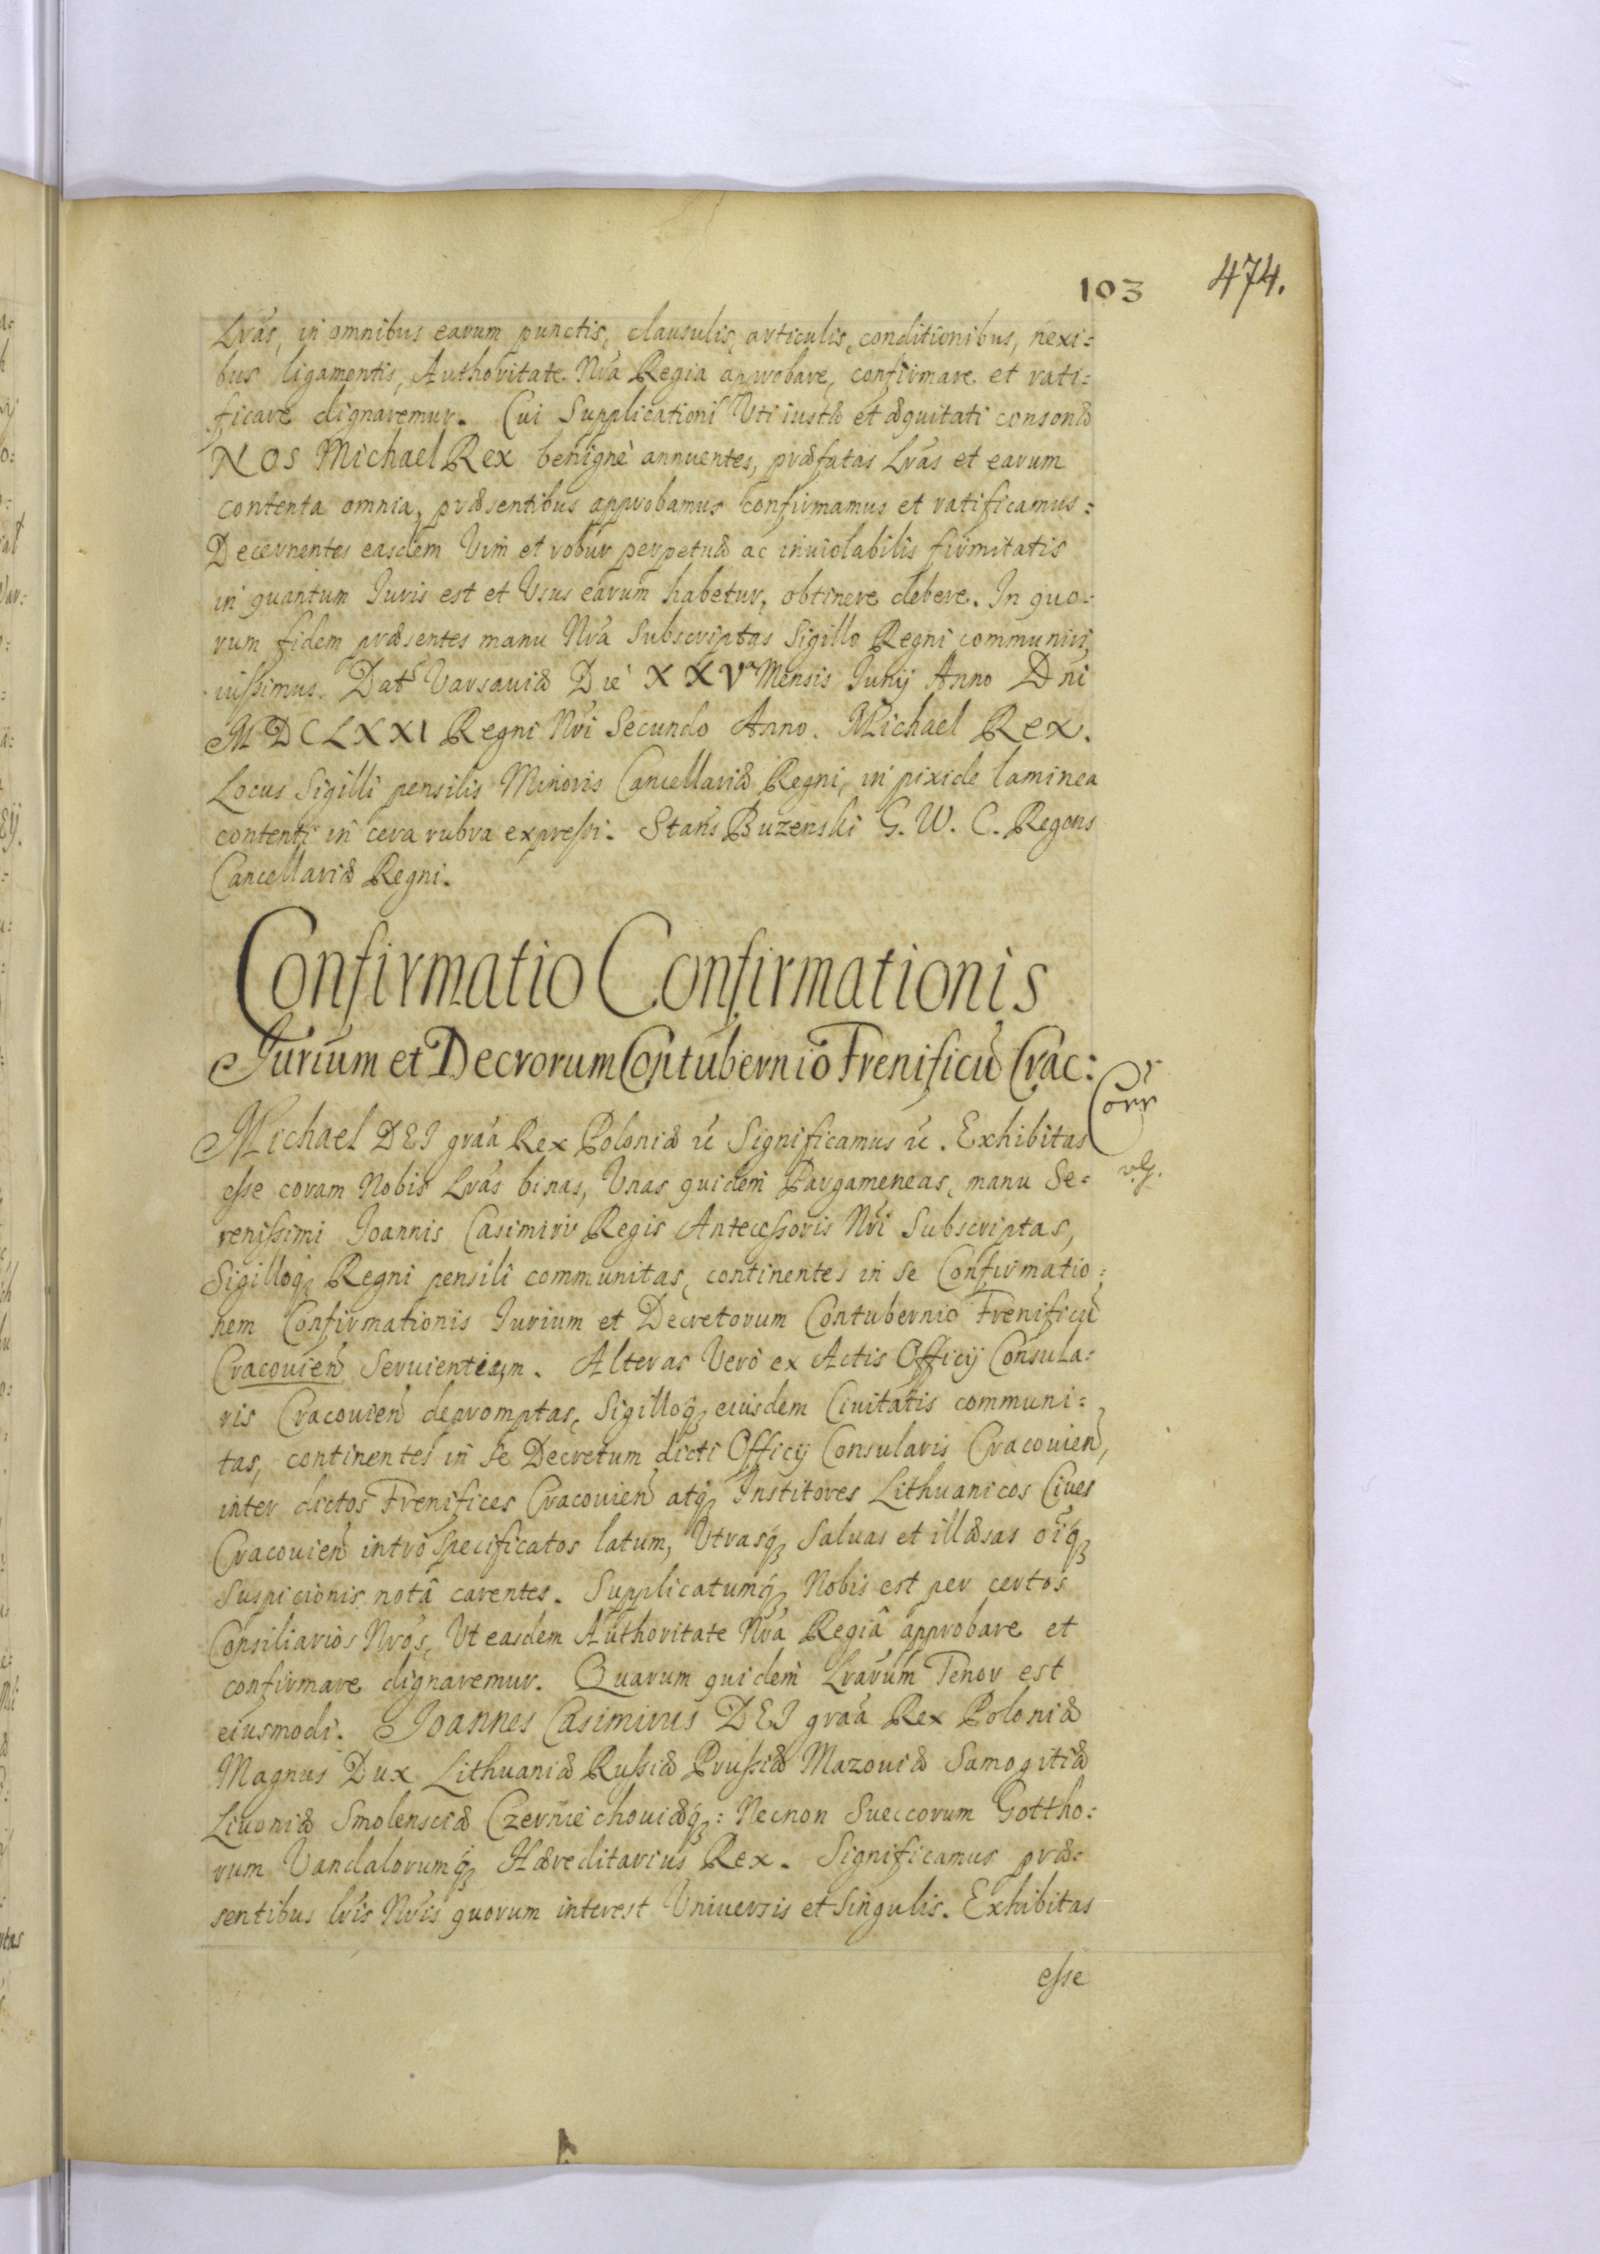 103 474.
Lrãs, in omnibus earum punctis, clausulis, articulis, conditionibus, nexi:
bus ligamentis, Authoritate Nrã Regia approbare, confirmare et rati:
ficare dignaremur. Cui Supplicationi Uti iustæ et æquitati consonæ
NOS Michael Rex benignè annuentes, præfatas Lrãs et earum
contenta omnia, præsentibus approbamus confirmamus et ratificamus:
Decernentes easdem Vim et robur perpetuæ ac inuiolabilis firmitatis
in quantum Juris est et Usus earum habetur, obtinere debere. In quo:
rum fidem præsentes manu Nrã Subscriptas Sigillo Regni communiri
iussimus. Dat Varsauiæ Die XXV Mensis Junij Anno Dni
MDCLXXI Regni Nri Secundo Anno. Michael Rex.
Locus Sigilli pensilis Minoris Cancellariæ Regni, in pixide laminea
contenti in cera rubra expressi. Stans Buzenski G. W. C. Regens
Cancellariæ Regni.
Confirmatio Confirmationis
Jurium et Decrorum Contubernio Frenificũ Crac:
Corr
Michael DEI graã Rex Poloniæ ũ Significamus ũ. Exhibitas
esse coram Nobis Lrãs binas, Unas quidem Pargameneas, manu Se:
renissimi Joannis Casimiri Regis Antecessoris Nri Subscriptas,
Sigilloq Regni pensili communitas, continentes in se Confirmatio:
nem Confirmationis Jurium et Decretorum Contubernio Frenificũ
Cracouien Seruientium. Alteras Verò ex Actis Officij Consula:
ris Cracouien depromptas, Sigilloq eiusdem Ciuitatis communi:
tas, continentes in se Decretum dicti Officij Consularis Cracouien,
inter dictos Frenifices Cracouien atq Institores Lithuanicos Ciues
Cracouien intrò specificatos latum, Utrasq Saluas et illæsas oiq
suspicionis notâ carentes. Supplicatumq Nobis est per certos
Consiliarios Nros, Ut easdem Authoritate Nrã Regiâ approbare et
confirmare dignaremur. Quarum quidem Lrarum Tenor est
eiusmodi. Joannes Casimirus DEI graã Rex Poloniæ
Magnus Dux Lithuaniæ Russiæ Prussiæ Mazouiæ Samogitiæ
Liuoniæ Smolensciæ Czerniechouiæq: Necnon Sueccorum Gottho:
rum Vandalorumq Hæreditarius Rex. Significamus præ:
sentibus lris Nris quorum interest Uniuersis et Singulis. Exhibitas
esse